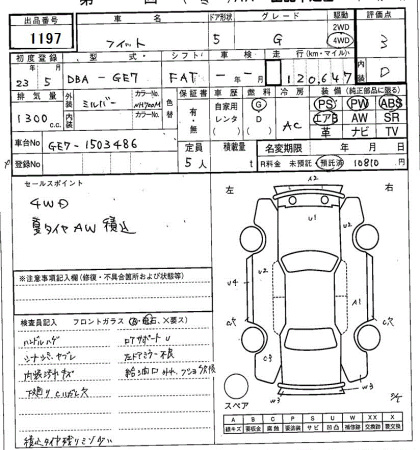 出品番号 車名 ドア形状 グレード 駆動 評価点
1197 フィット 5 G 2WD 4WD 3
初度登録 型式 シフト 車検 走行(km・マイル) 内装
23 5 DBA-GE7 FAT 年 月 120,647 D
排気量 外装 カラーNo. 色替 保証書 車歴 燃料 冷房 装備(純正部品に限る)
1300 c.c. シルバー NH700M 有・無 自家用 レンタ G D AC PS PW ABS
内装 カラーNo. エアB AW SR
革 ナビ TV
車台No. GE7-1503486 定員 積載量 名変期限 年 月 日
登録No. 5人 t R料金 未預託 預託済 10810 円
セールスポイント
4WD
夏タイヤAW積込
左 右
A2
U1
U2 U2
U4 A1
C穴 C穴
C3
W3 W3
スペア
※注意事項記入欄(修復・不具合箇所および状態等)
検査員記入 フロントガラス (A・飛石、×要ス)
ハンドルハゲ コアサポートU
シートシミ、ヤブレ 左ドアミラー不良
内装 キズ 給油口
下廻り
積込タイヤ残リミゾ
A B C P S U W X XX
線キズ 要板金 腐蝕 要塗装 サビ 凹凸 補修跡 要交換 交換済